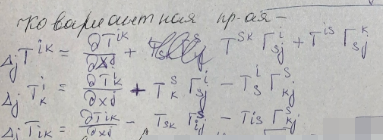 ковариантная пр-ая –
Δ_j T^{ik} = ∂T^{ik}/∂x^j + T^{sk} Γ^i_{sj} + T^{is} Γ^k_{sj}
Δ_j T^i_k = ∂T^i_k/∂x^j + T^s_k Γ^i_{sj} – T^i_s Γ^s_{kj}
Δ_j T_{ik} = ∂T_{ik}/∂x^j – T_{sk} Γ^s_{ij} – T_{is} Γ^s_{kj}